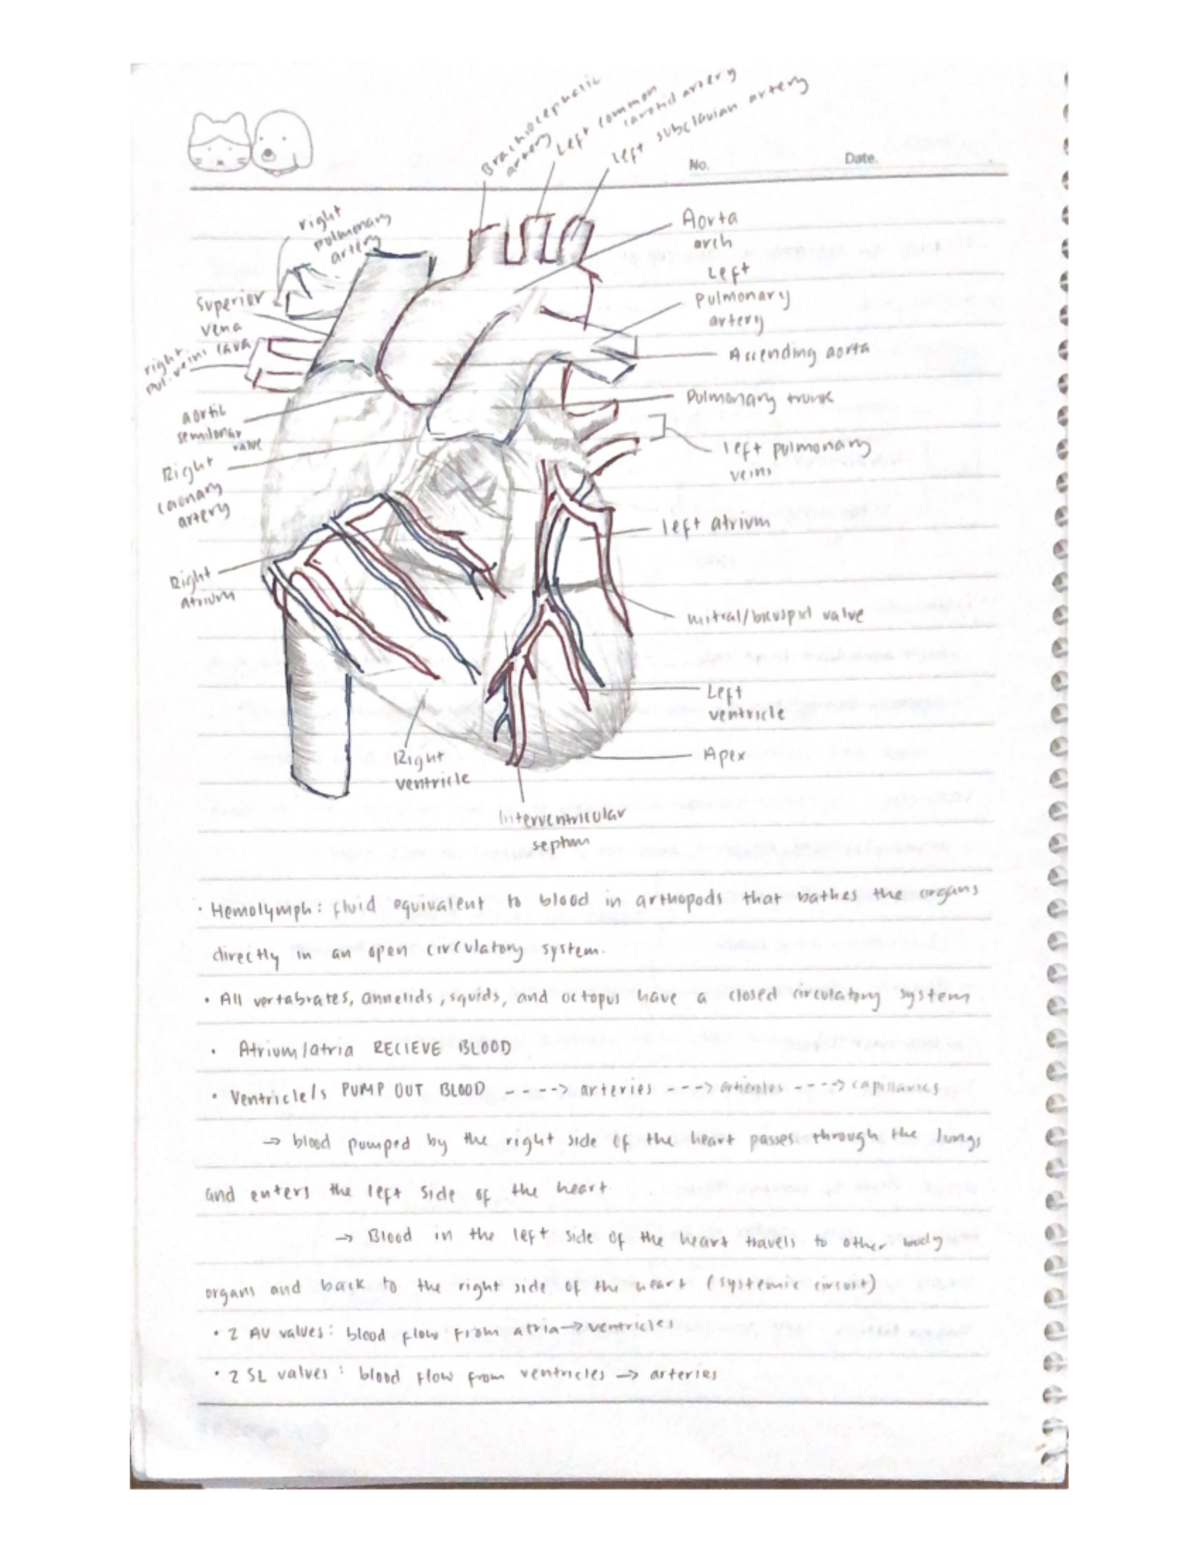 Brachiocephalic
artery
Left common
carotid artery
Left subclavian artery
No.
Date.
right
pulmonary
artery
Aorta
arch
Superior
vena
cava
Left
pulmonary
artery
right
pul. veins
Ascending aorta
aortic
semilunar
valve
Pulmonary trunk
Right
coronary
artery
left pulmonary
veins
left atrium
Right
atrium
mitral/bicuspid valve
Left
ventricle
Right
ventricle
Apex
Interventricular
septum
• Hemolymph: fluid equivalent to blood in arthopods that bathes the organs
directly in an open circulatory system.
• All vertabrates, annelids, squids, and octopus have a closed circulatory system
• Atrium/atria RECIEVE BLOOD
• Ventricle/s PUMP OUT BLOOD ----> arteries ---> arterioles ----> capillaries
→ blood pumped by the right side of the heart passes through the lungs
and enters the left side of the heart.
→ Blood in the left side of the heart travels to other body
organs and back to the right side of the heart (systemic circuit)
• 2 AV valves: blood flow from atria→ventricles
• 2 SL valves: blood flow from ventricles → arteries